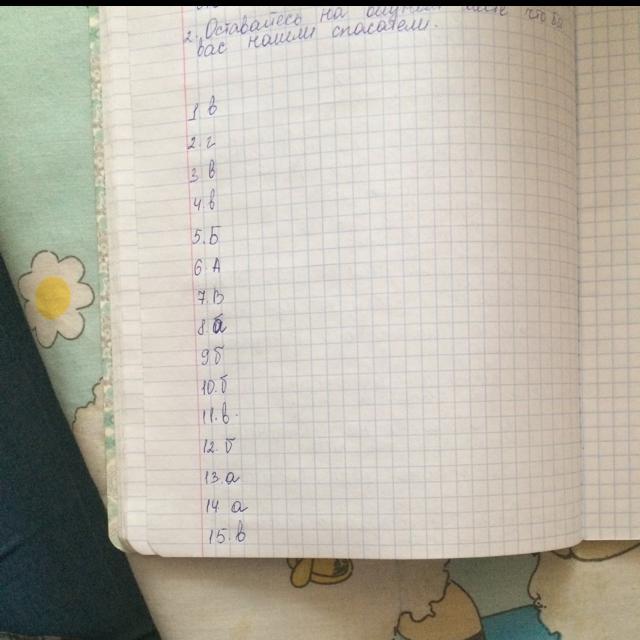 2. Оставайтесь на что бы
вас нашли спасатели.
1 в
2. г
3 в
4. в
5. Б
6 А
7 В
8 а
9 б
10. б
11. в.
12. б
13. а
14 а
15. в